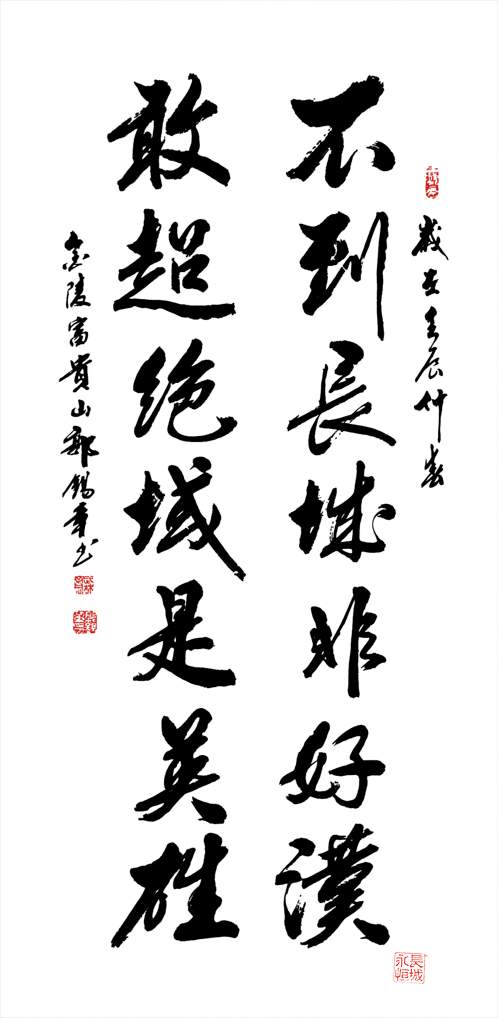 歲在壬辰仲春
不到長城非好漢
敢超绝域是英雄
金陵富貴山郭錫章书
長城
永恒